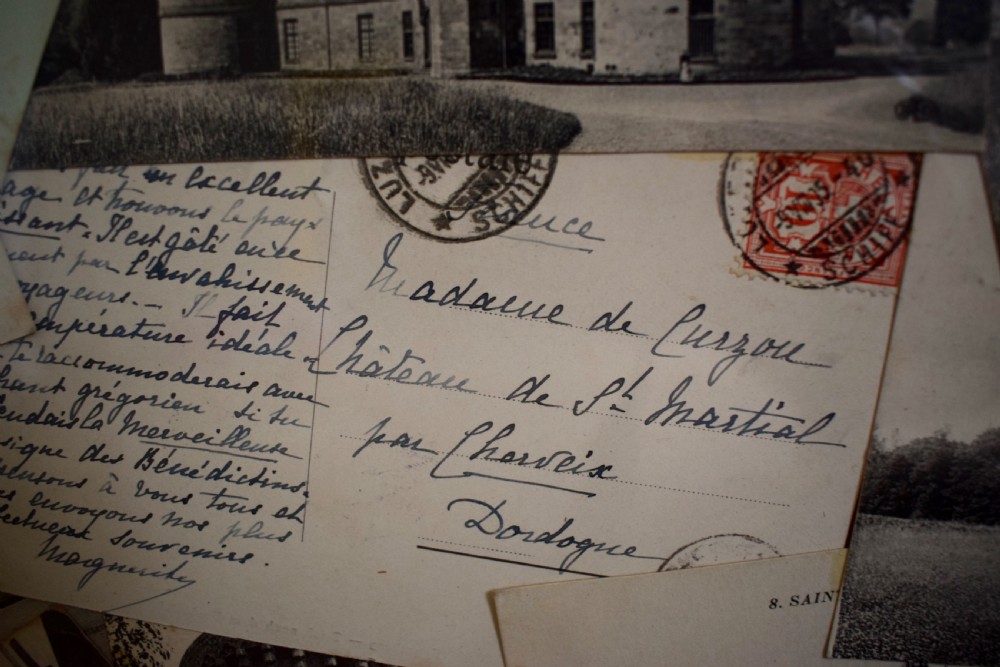 un excellent
age et trouvons le pays
issant. Il est gâté avec
ment par l'envahissement
oyageurs. — Il fait
empérature idéale.
te raccommoderais avec
hant grégorien si tu
endais la Merveilleuse
signe des Bénédictins.
ensons à vous tous et
s envoyons nos plus
fectueux souvenirs.
Marguerite
LUZ
SCHIFF
10
SCHIFF
Madame de Curzon
Château de St Martial
par Cherveix
Dordogne
8. SAIN